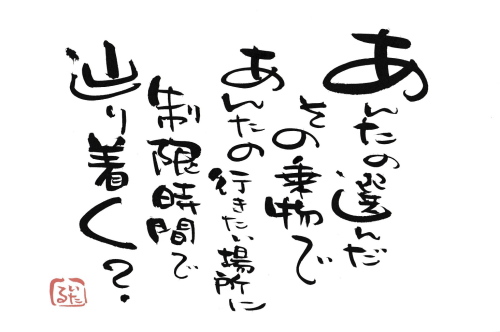 あんたの選んだ
その乗物で
あんたの行きたい場所に
制限時間で
辿り着く?
いたる